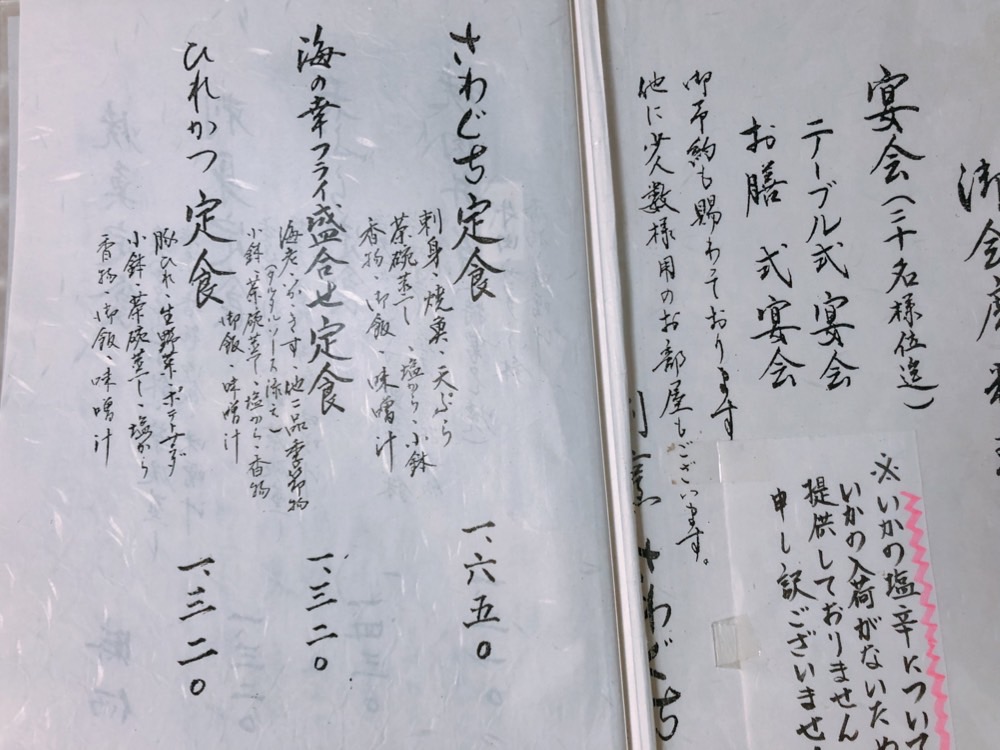 宴会(二十名様位迄)
テーブル式宴会
お膳式宴会
御予約も賜わっております
他に少人数様用のお部屋もございます。
※いかの塩辛について
いかの入荷がないため
提供しておりません
申し訳ございませ
さわぢち
さわぢち定食
刺身・焼魚・天ぷら
茶碗蒸し・塩から・小鉢
香物・御飯・味噌汁
一、六五〇
海の幸フライ盛合せ定食
海老・かき・す 他二品季節物
(タルタルソース添え)
小鉢・茶碗蒸し・塩から・香物
御飯・味噌汁
一、三二〇
ひれかつ定食
豚ひれ・生野菜・ポテトサラダ
小鉢・茶碗蒸し・塩から
香物・御飯・味噌汁
一、三二〇